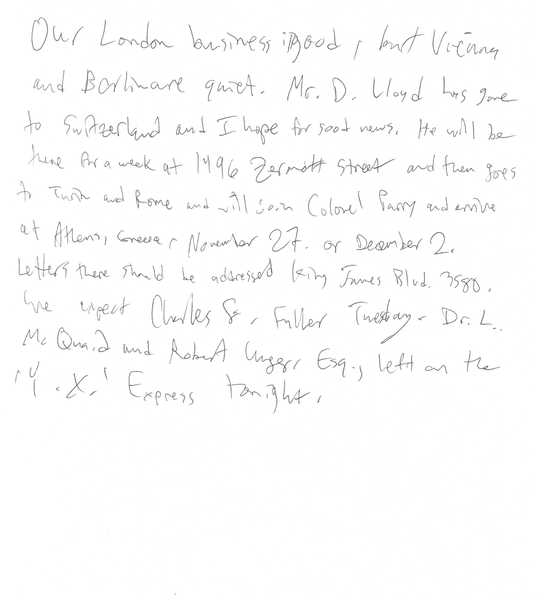 Our London business is good, but Vienna
and Berlin are quiet. Mr. D. Lloyd has gone
to Switzerland and I hope for good news. He will be
there for a week at 1496 Zermott Street and then goes
to Turin and Rome and will join Colonel Parry and arrive
at Athens, Greece, November 27. or December 2.
Letters there should be addressed King James Blvd. 3580.
We expect Charles E. Fuller Tuesday. Dr. L.
McQuaid and Robert Unger, Esq., left on the
'Y.X.' Express tonight.